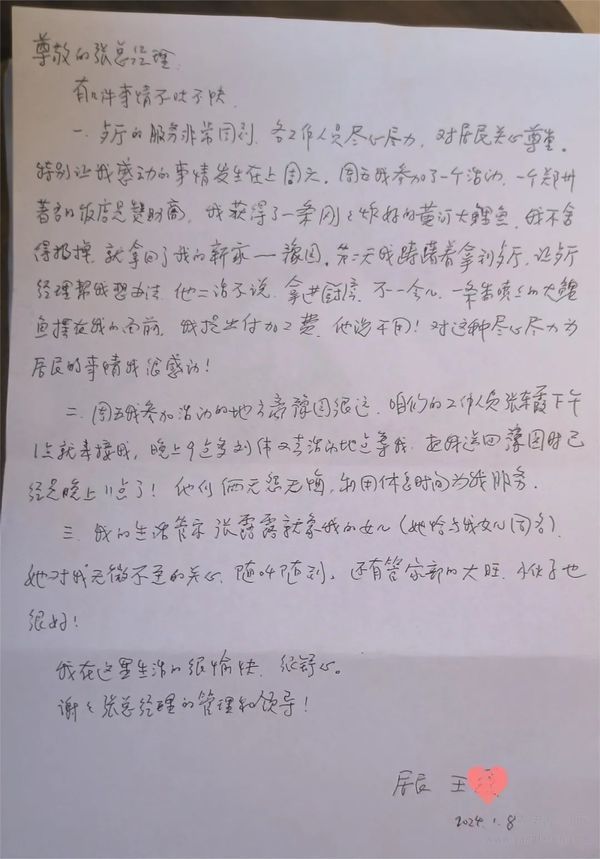 尊敬的张总经理:
有几件事情不吐不快.
一. 歺厅的服务非常周到, 各工作人员尽心尽力, 对居民关心尊重。
特别让我感动的事情发生在上周六. 周五我参加了一个活动, 一个郑州
著名的饭店是赞助商, 我获得了一条刚刚炸好的黄河大鲤鱼, 我不舍
得扔掉, 就拿回了我的新家—豫园. 第二天我踌躇着拿到歺厅, 让歺厅
经理帮我想办法. 他二话不说, 拿进厨房, 不一会儿, 一条香喷喷的大鲤
鱼摆在我的面前. 我提出付加工费, 他说不用! 对这种尽心尽力为
居民的事情我很感动!
二. 周五我参加活动的地方离豫园很远, 咱们的工作人员张东霞下午
1点就来接我, 晚上9点多刘伟又去活动地点等我, 把我送回豫园时已
经是晚上11点了! 他们俩无怨无悔, 利用休息时间为我服务.
三. 我的生活管家张露露就象我的女儿 (她恰与我女儿同名),
她对我无微不至的关心, 随叫随到。还有管家部的大旺, 小伙子也
很好!
我在这里生活的很愉快, 很舒心。
谢谢张总经理的管理和领导!
居民 王
2024.1.8